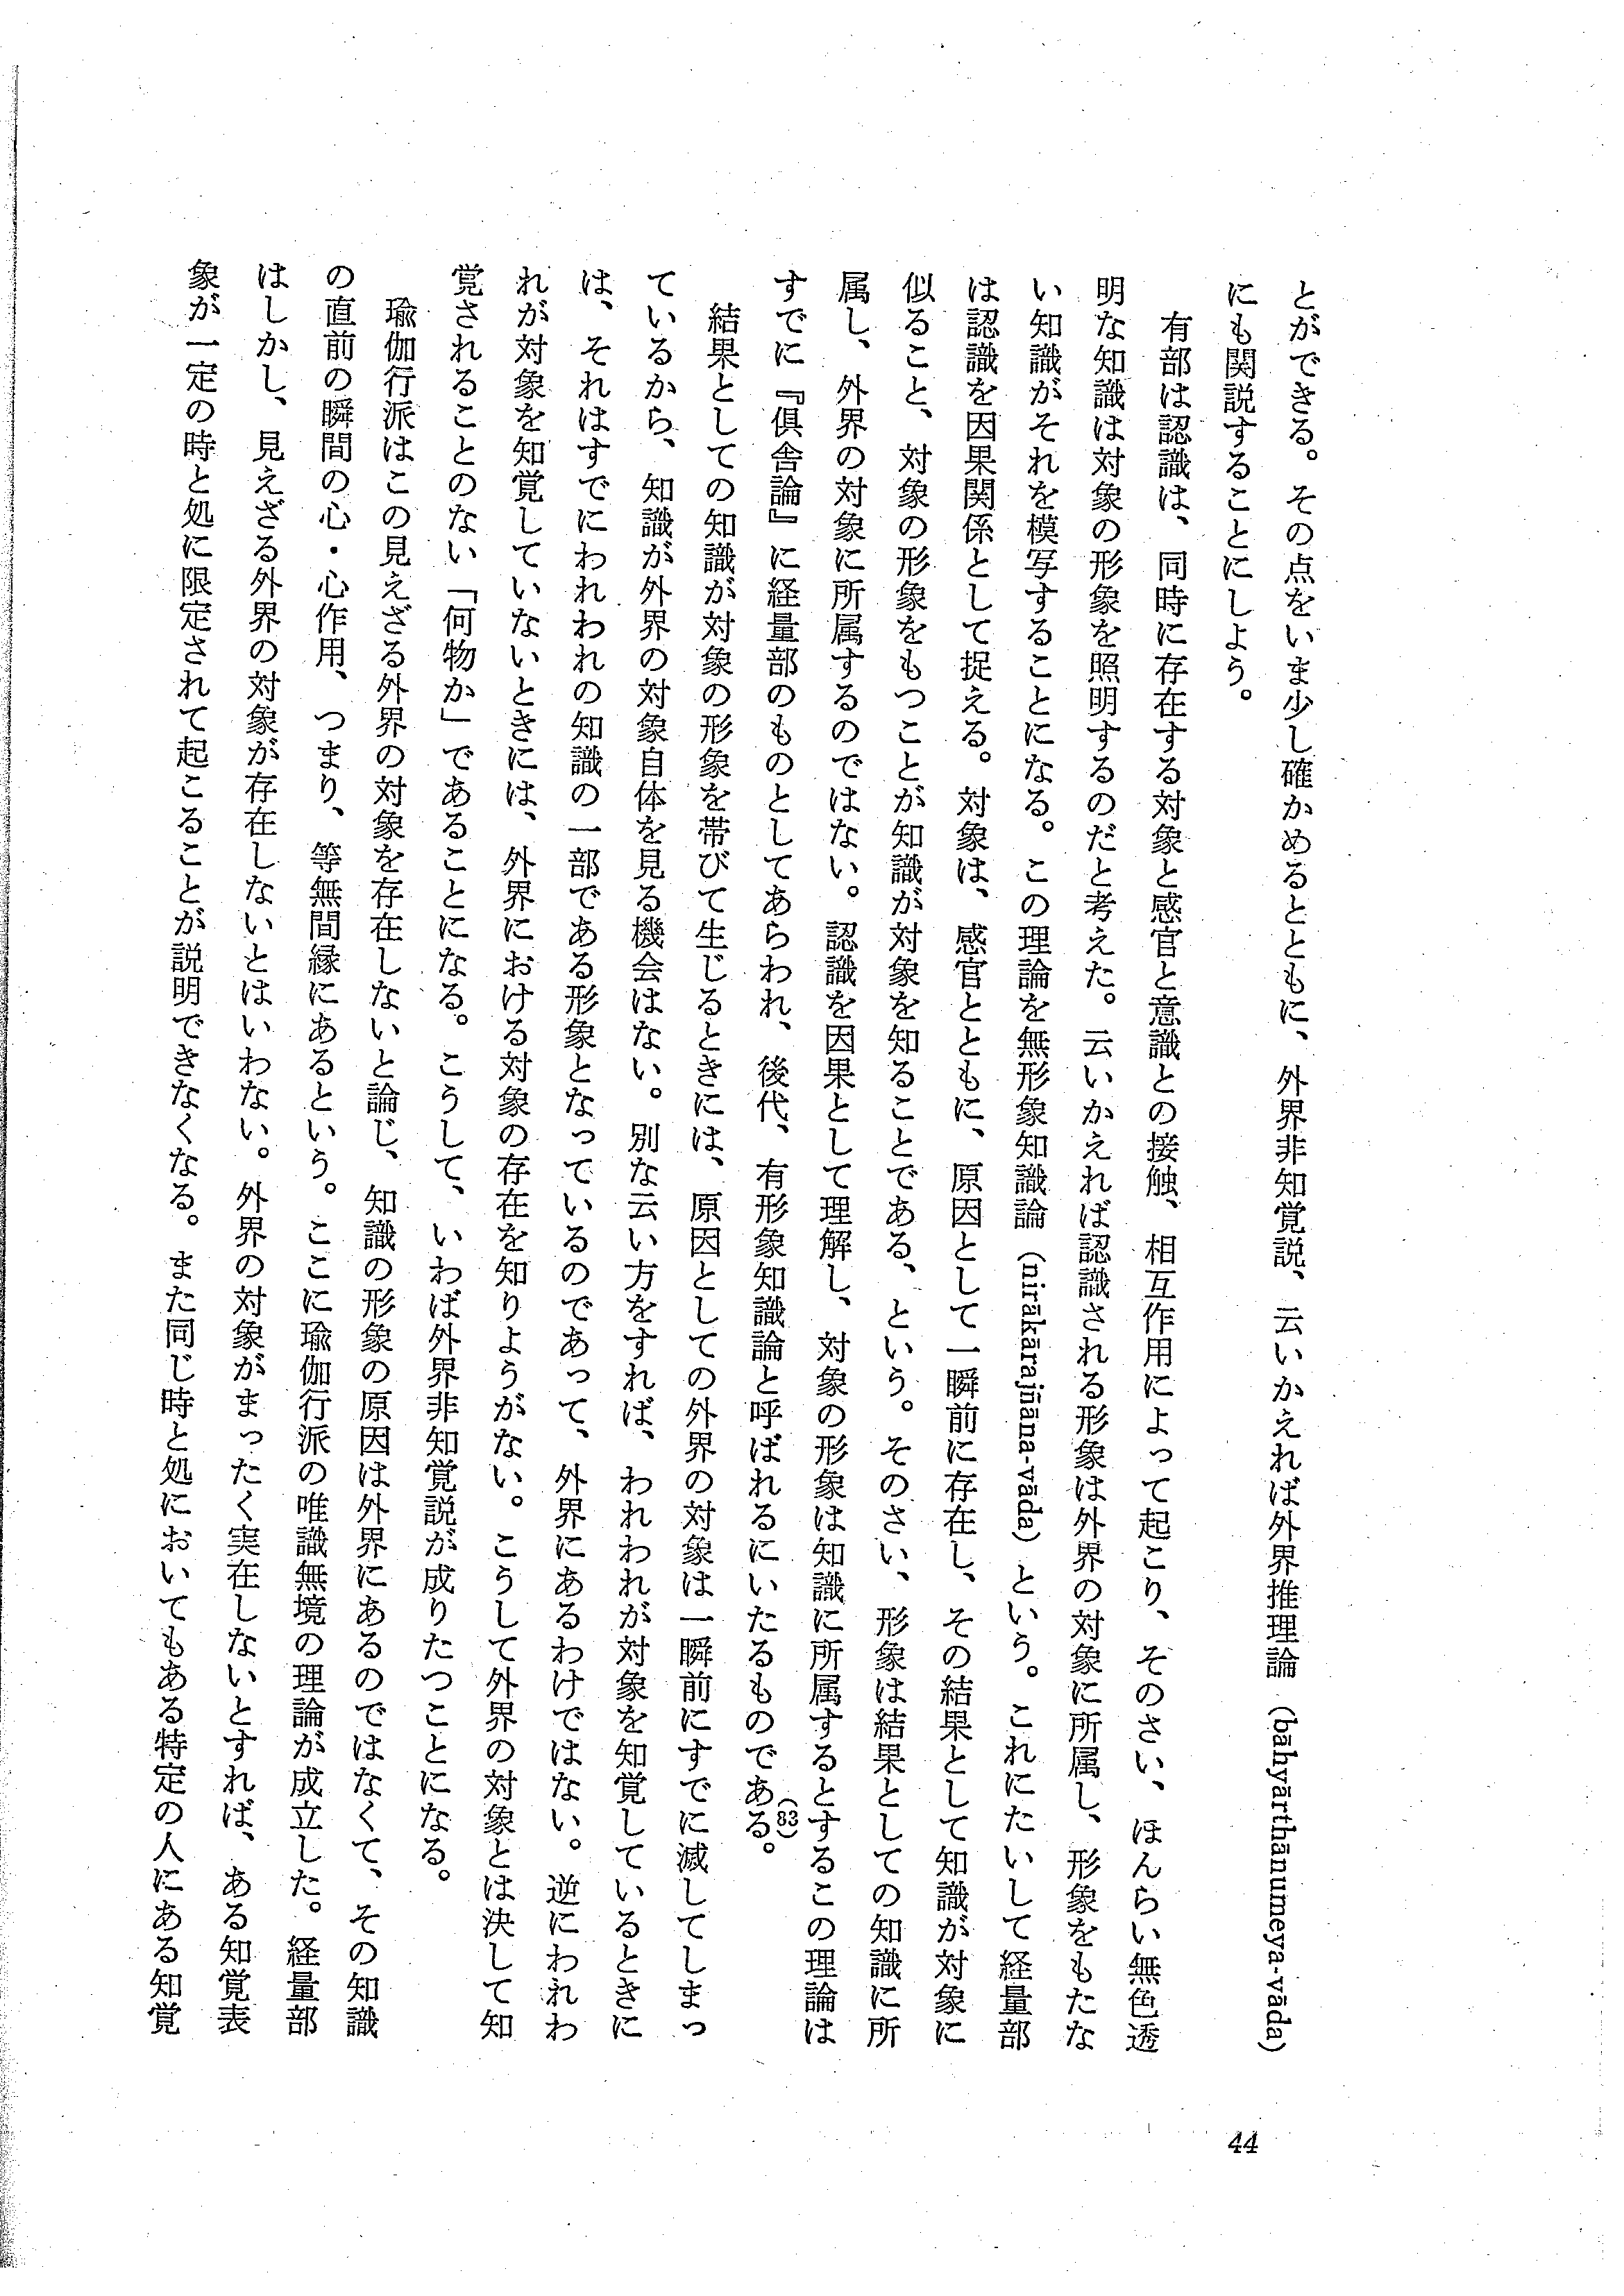 とができる。その点をいま少し確かめるとともに、外界非知覚説、云いかえれば外界推理論（bāhyārthānumeya-vāda）
にも関説することにしよう。
有部は認識は、同時に存在する対象と感官と意識との接触、相互作用によって起こり、そのさい、ほんらい無色透
明な知識は対象の形象を照明するのだと考えた。云いかえれば認識される形象は外界の対象に所属し、形象をもたな
い知識がそれを模写することになる。この理論を無形象知識論（nirākārajñāna-vāda）という。これにたいして経量部
は認識を因果関係として捉える。対象は、感官とともに、原因として一瞬前に存在し、その結果として知識が対象に
似ること、対象の形象をもつことが知識が対象を知ることである、という。そのさい、形象は結果としての知識に所
属し、外界の対象に所属するのではない。認識を因果として理解し、対象の形象は知識に所属するとするこの理論は
すでに『倶舎論』に経量部のものとしてあらわれ、後代、有形象知識論と呼ばれるにいたるものである。(83)
結果としての知識が対象の形象を帯びて生じるときには、原因としての外界の対象は一瞬前にすでに滅してしまっ
ているから、知識が外界の対象自体を見る機会はない。別な云い方をすれば、われわれが対象を知覚しているときに
は、それはすでにわれわれの知識の一部である形象となっているのであって、外界にあるわけではない。逆にわれわ
れが対象を知覚していないときには、外界における対象の存在を知りようがない。こうして外界の対象とは決して知
覚されることのない「何物か」であることになる。こうして、いわば外界非知覚説が成りたつことになる。
瑜伽行派はこの見えざる外界の対象を存在しないと論じ、知識の形象の原因は外界にあるのではなくて、その知識
の直前の瞬間の心・心作用、つまり、等無間縁にあるという。ここに瑜伽行派の唯識無境の理論が成立した。経量部
はしかし、見えざる外界の対象が存在しないとはいわない。外界の対象がまったく実在しないとすれば、ある知覚表
象が一定の時と処に限定されて起こることが説明できなくなる。また同じ時と処においてもある特定の人にある知覚
44